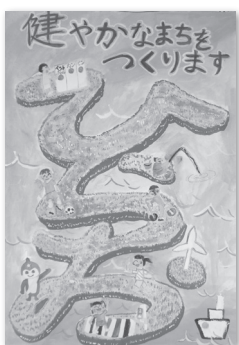 健やかなまちを
つくります